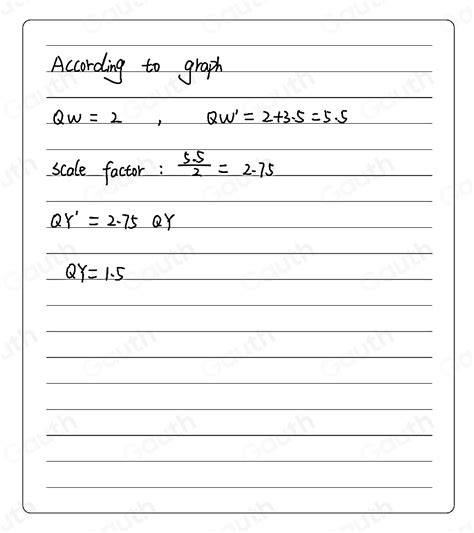 According to graph
QW = 2 , QW' = 2+3.5 = 5.5
scale factor : 5.5/2 = 2.75
QY' = 2.75 QY
QY = 1.5